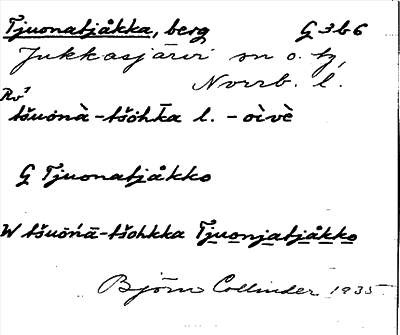 Tjuonatjåkka, berg G 3 b 6
Jukkasjärvi sn o. tg,
Norrb. l.
Rv³
tšuonà-tšòhka l. -oìvè
G Tjuonatjåkko
W tšuóna-tšohkka Tjuonjatjåkko
Björn Collinder 1935